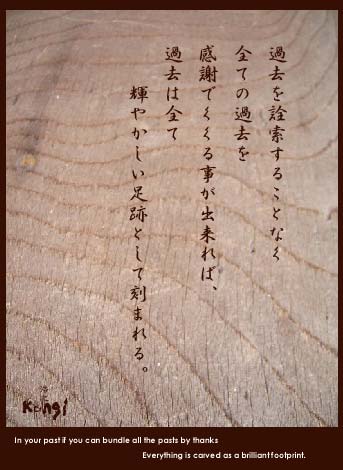 過去を詮索することなく
全ての過去を
感謝でくくる事が出来れば、
過去は全て
輝やかしい足跡として刻まれる。
Kengi
In your past if you can bundle all the pasts by thanks
Everything is carved as a brilliant footprint.